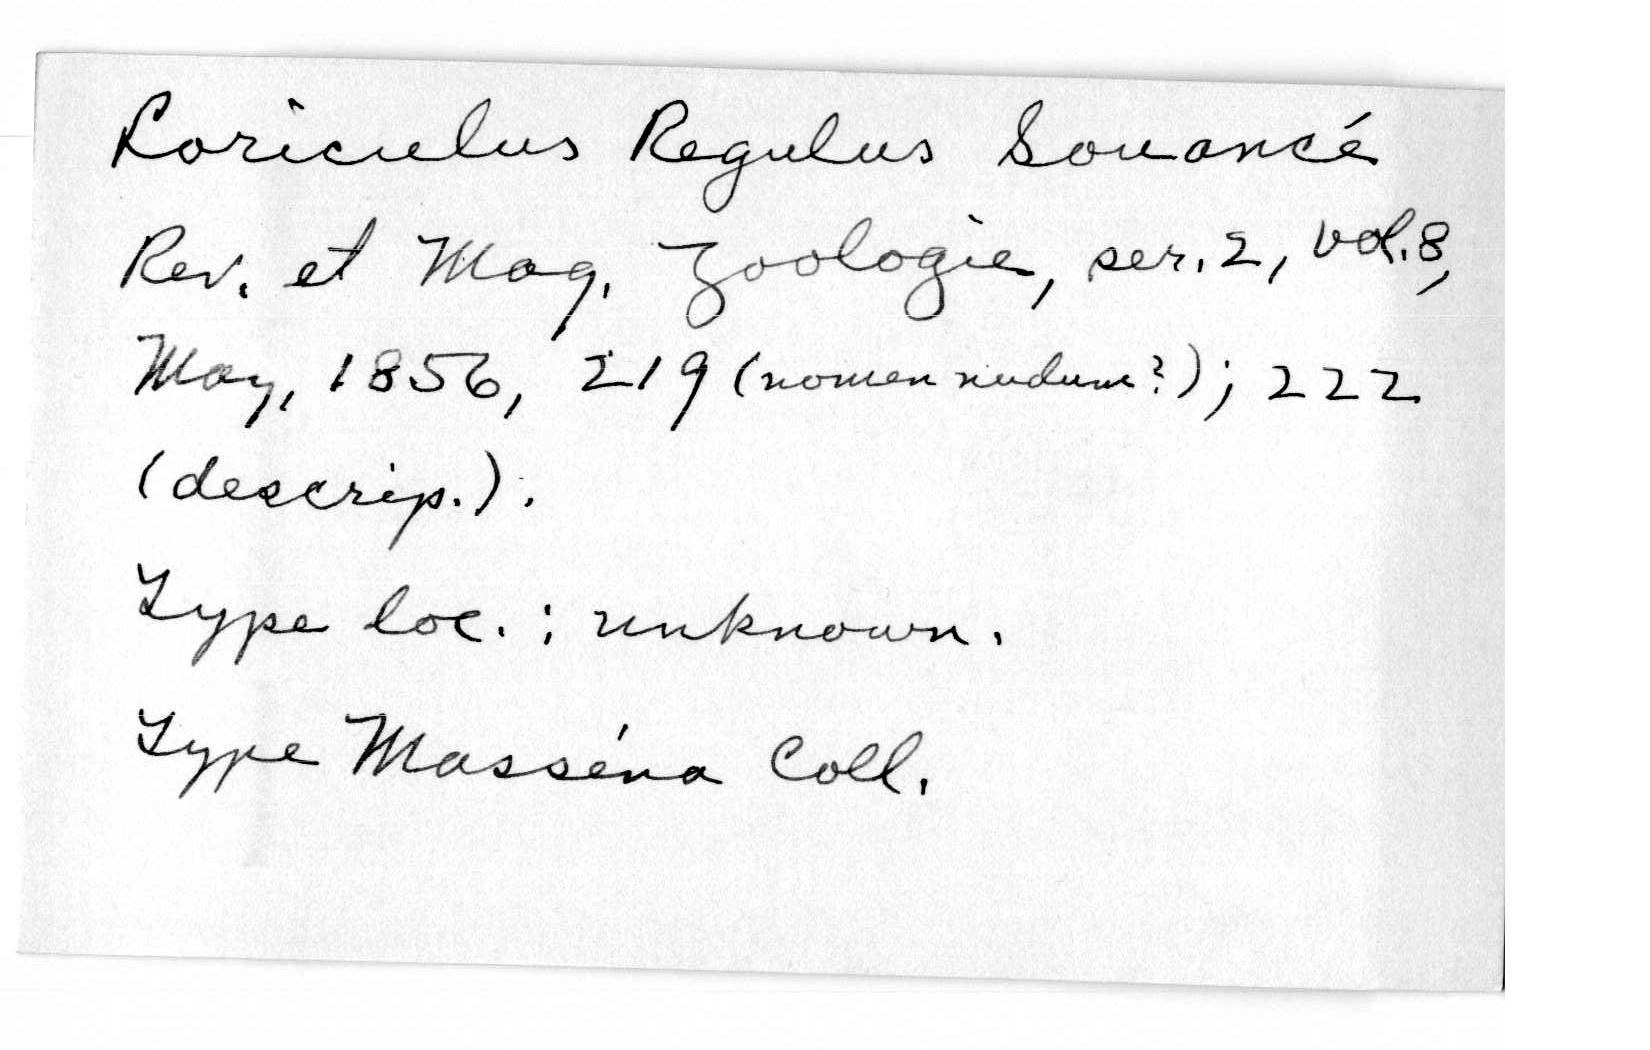 Loriculus Regulus Souancé
Rev. et Mag. Zoologie, ser. 2, vol. 8,
May, 1856, 219 (nomen nudum?); 222
(descrip.).
Type loc. : unknown.
Type Masséna Coll.